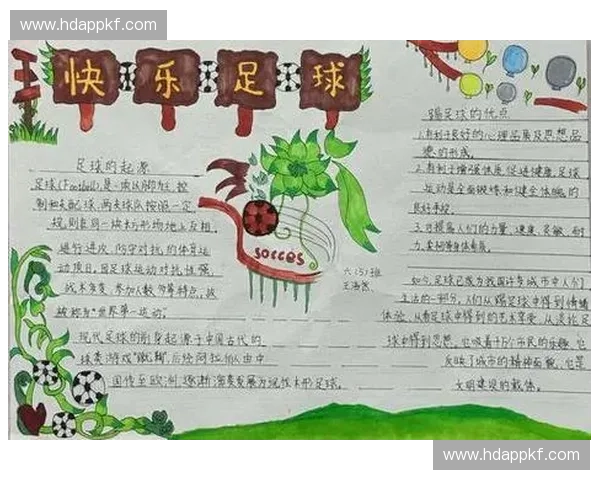 www.hdappkf.com
快乐足球
足球的起源
足球(Football)是一项以脚为主,控
制和支配球,两支球队按照一定
规则在同一块长方形场地上互相
进行进攻、防守对抗的体育运
动项目。因足球运动对抗性强、
战术多变、参加人数多等特点,故
被称为"世界第一运动"。
现代足球的前身起源于中国古代的
球类游戏"蹴鞠",后经阿拉伯人由中
国传至欧洲,逐渐演变发展为现代足球。
socces
六(5)班
踢足球的优点
1.有利于良好的心理品质及思想品
质的形成。
2.有利于增强体质,促进健康,足球
运动是全面锻炼和健全体魄的
良好手段。
3.可提高人们的力量、速度、灵敏、耐
力、柔韧等身体素质。
如今,足球已成为我国许多城市中人们
生活的一部分,人们从踢足球中得到情绪
体验,从看足球中得到的艺术享受,从谈论足
球中得到思想。它吸着千万个市民的乐趣,它
反映了城市的精神面貌,它是
文明建设的载体。
www.hdappkf.com